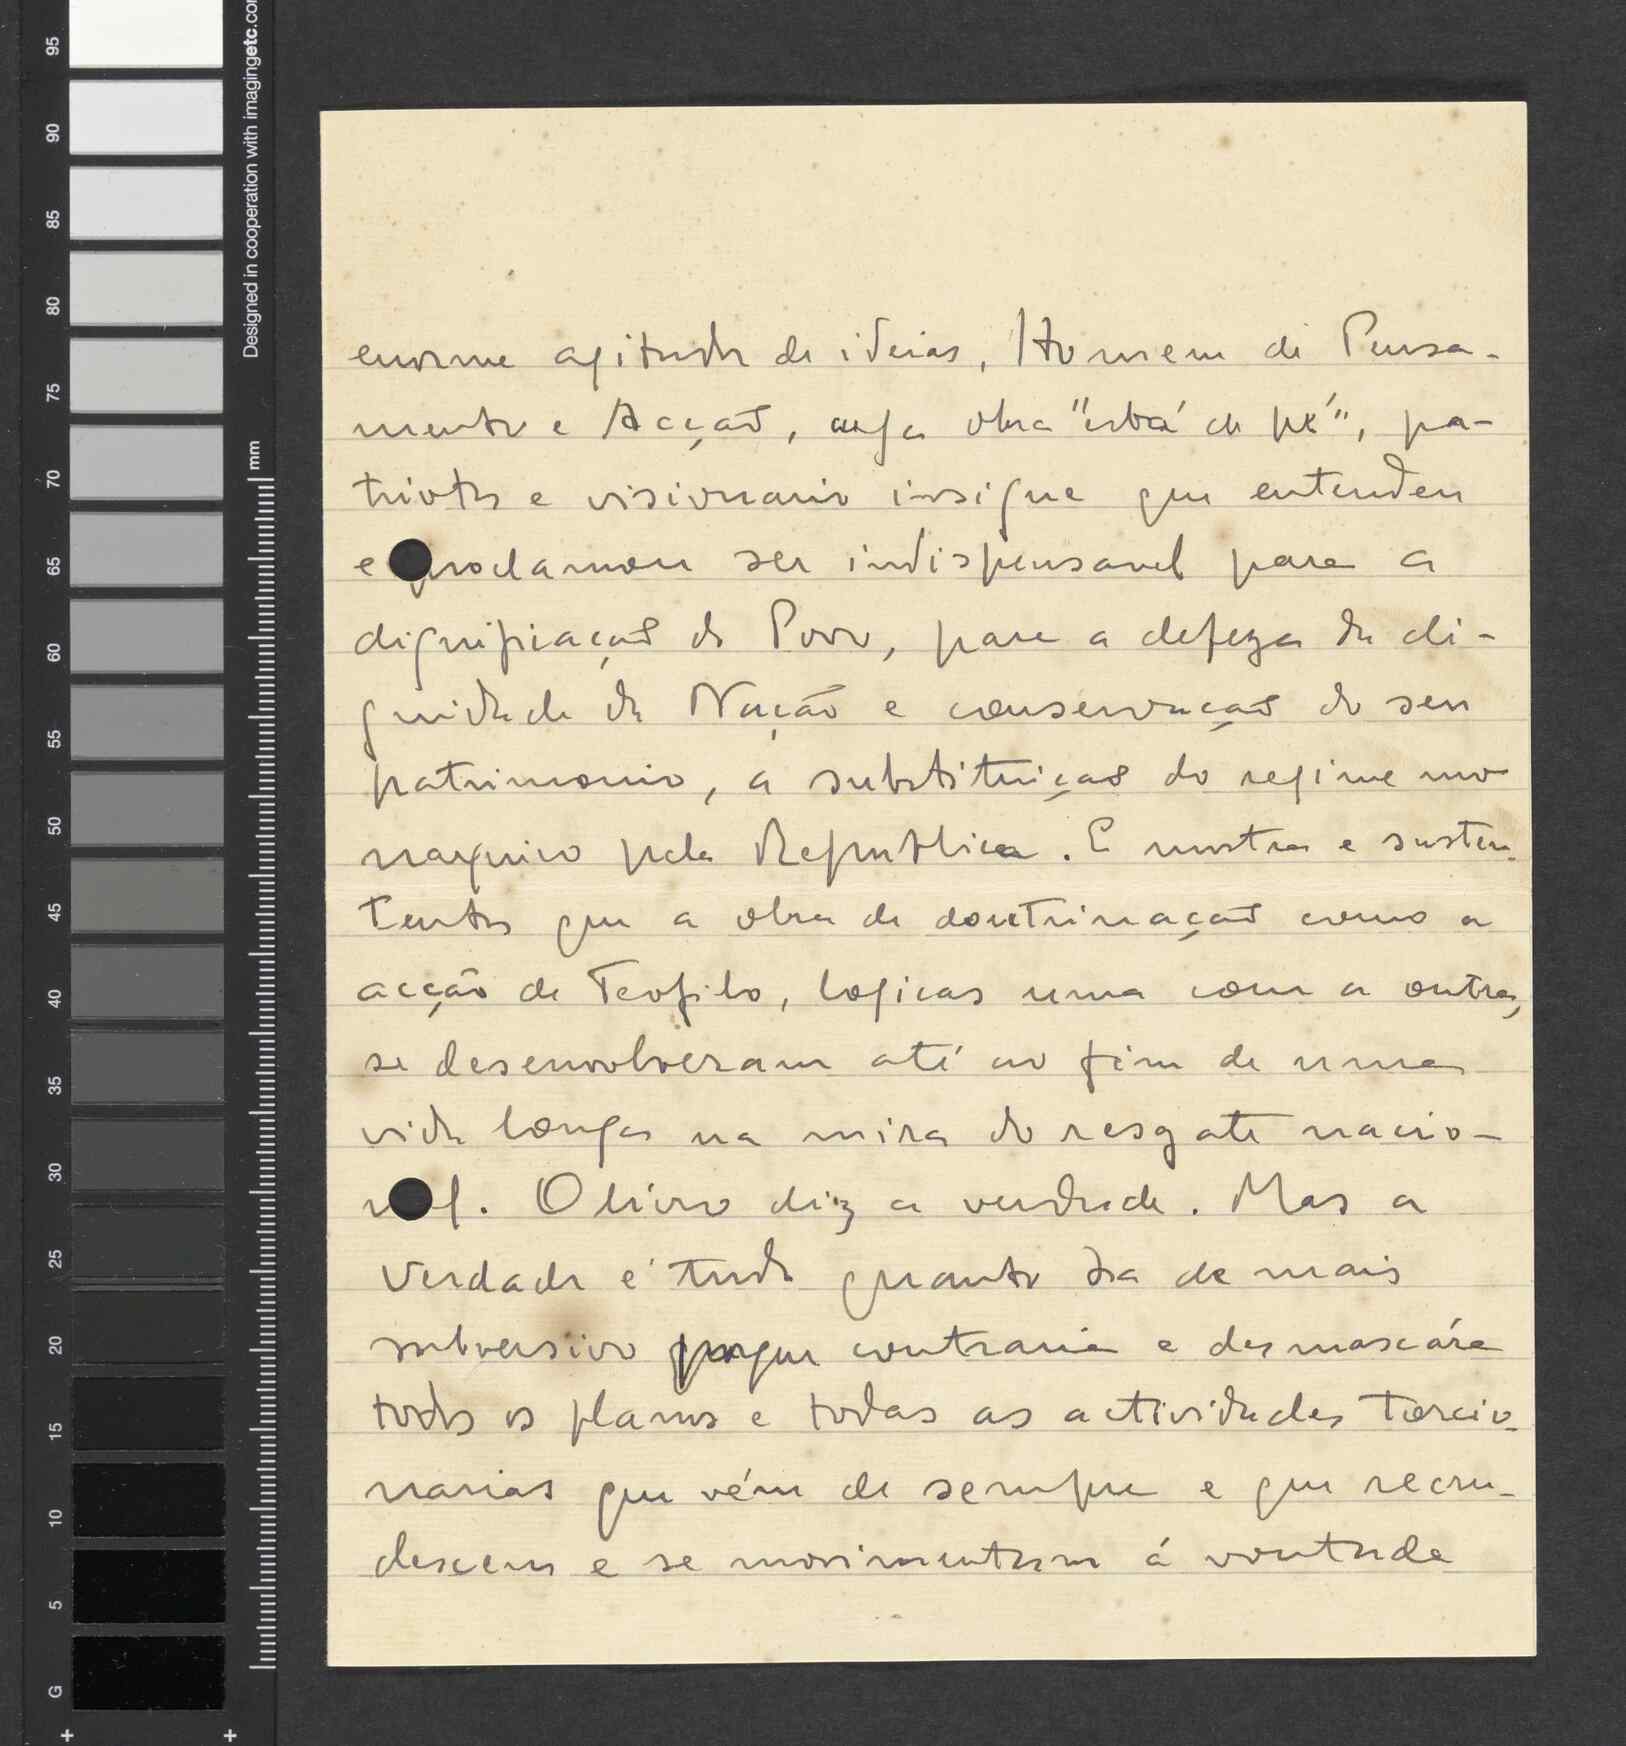 95
90
85
80
75
70
65
60
55
50
45
40
35
30
25
20
15
10
5
G
Designed in cooperation with imagingetc.com
mm
enorme agitador de ideias, Homem de Pensa-
mento e Acção, cuja obra "está de pé", pa-
triota e visionario insigne que entendeu
e proclamou ser indispensavel para a
dignificação do Povo, para a defeza da di-
gnidade da Nação e conservação do seu
patrimonio, a substituição do regime mo
narquico pela Republica. E mostra e susten-
tenta que a obra de doutrinação como a
acção de Teofilo, logicas uma com a outra,
se desenvolveram até ao fim de uma
vida longa na mira do resgate nacio-
nal. O livro diz a verdade. Mas a
Verdade é tudo quanto ha de mais
subversivo porque contraria e desmascára
todos os planos e todas as actividades torcio-
narias que vém de sempre e que recru-
descem e se movimentam á vontade